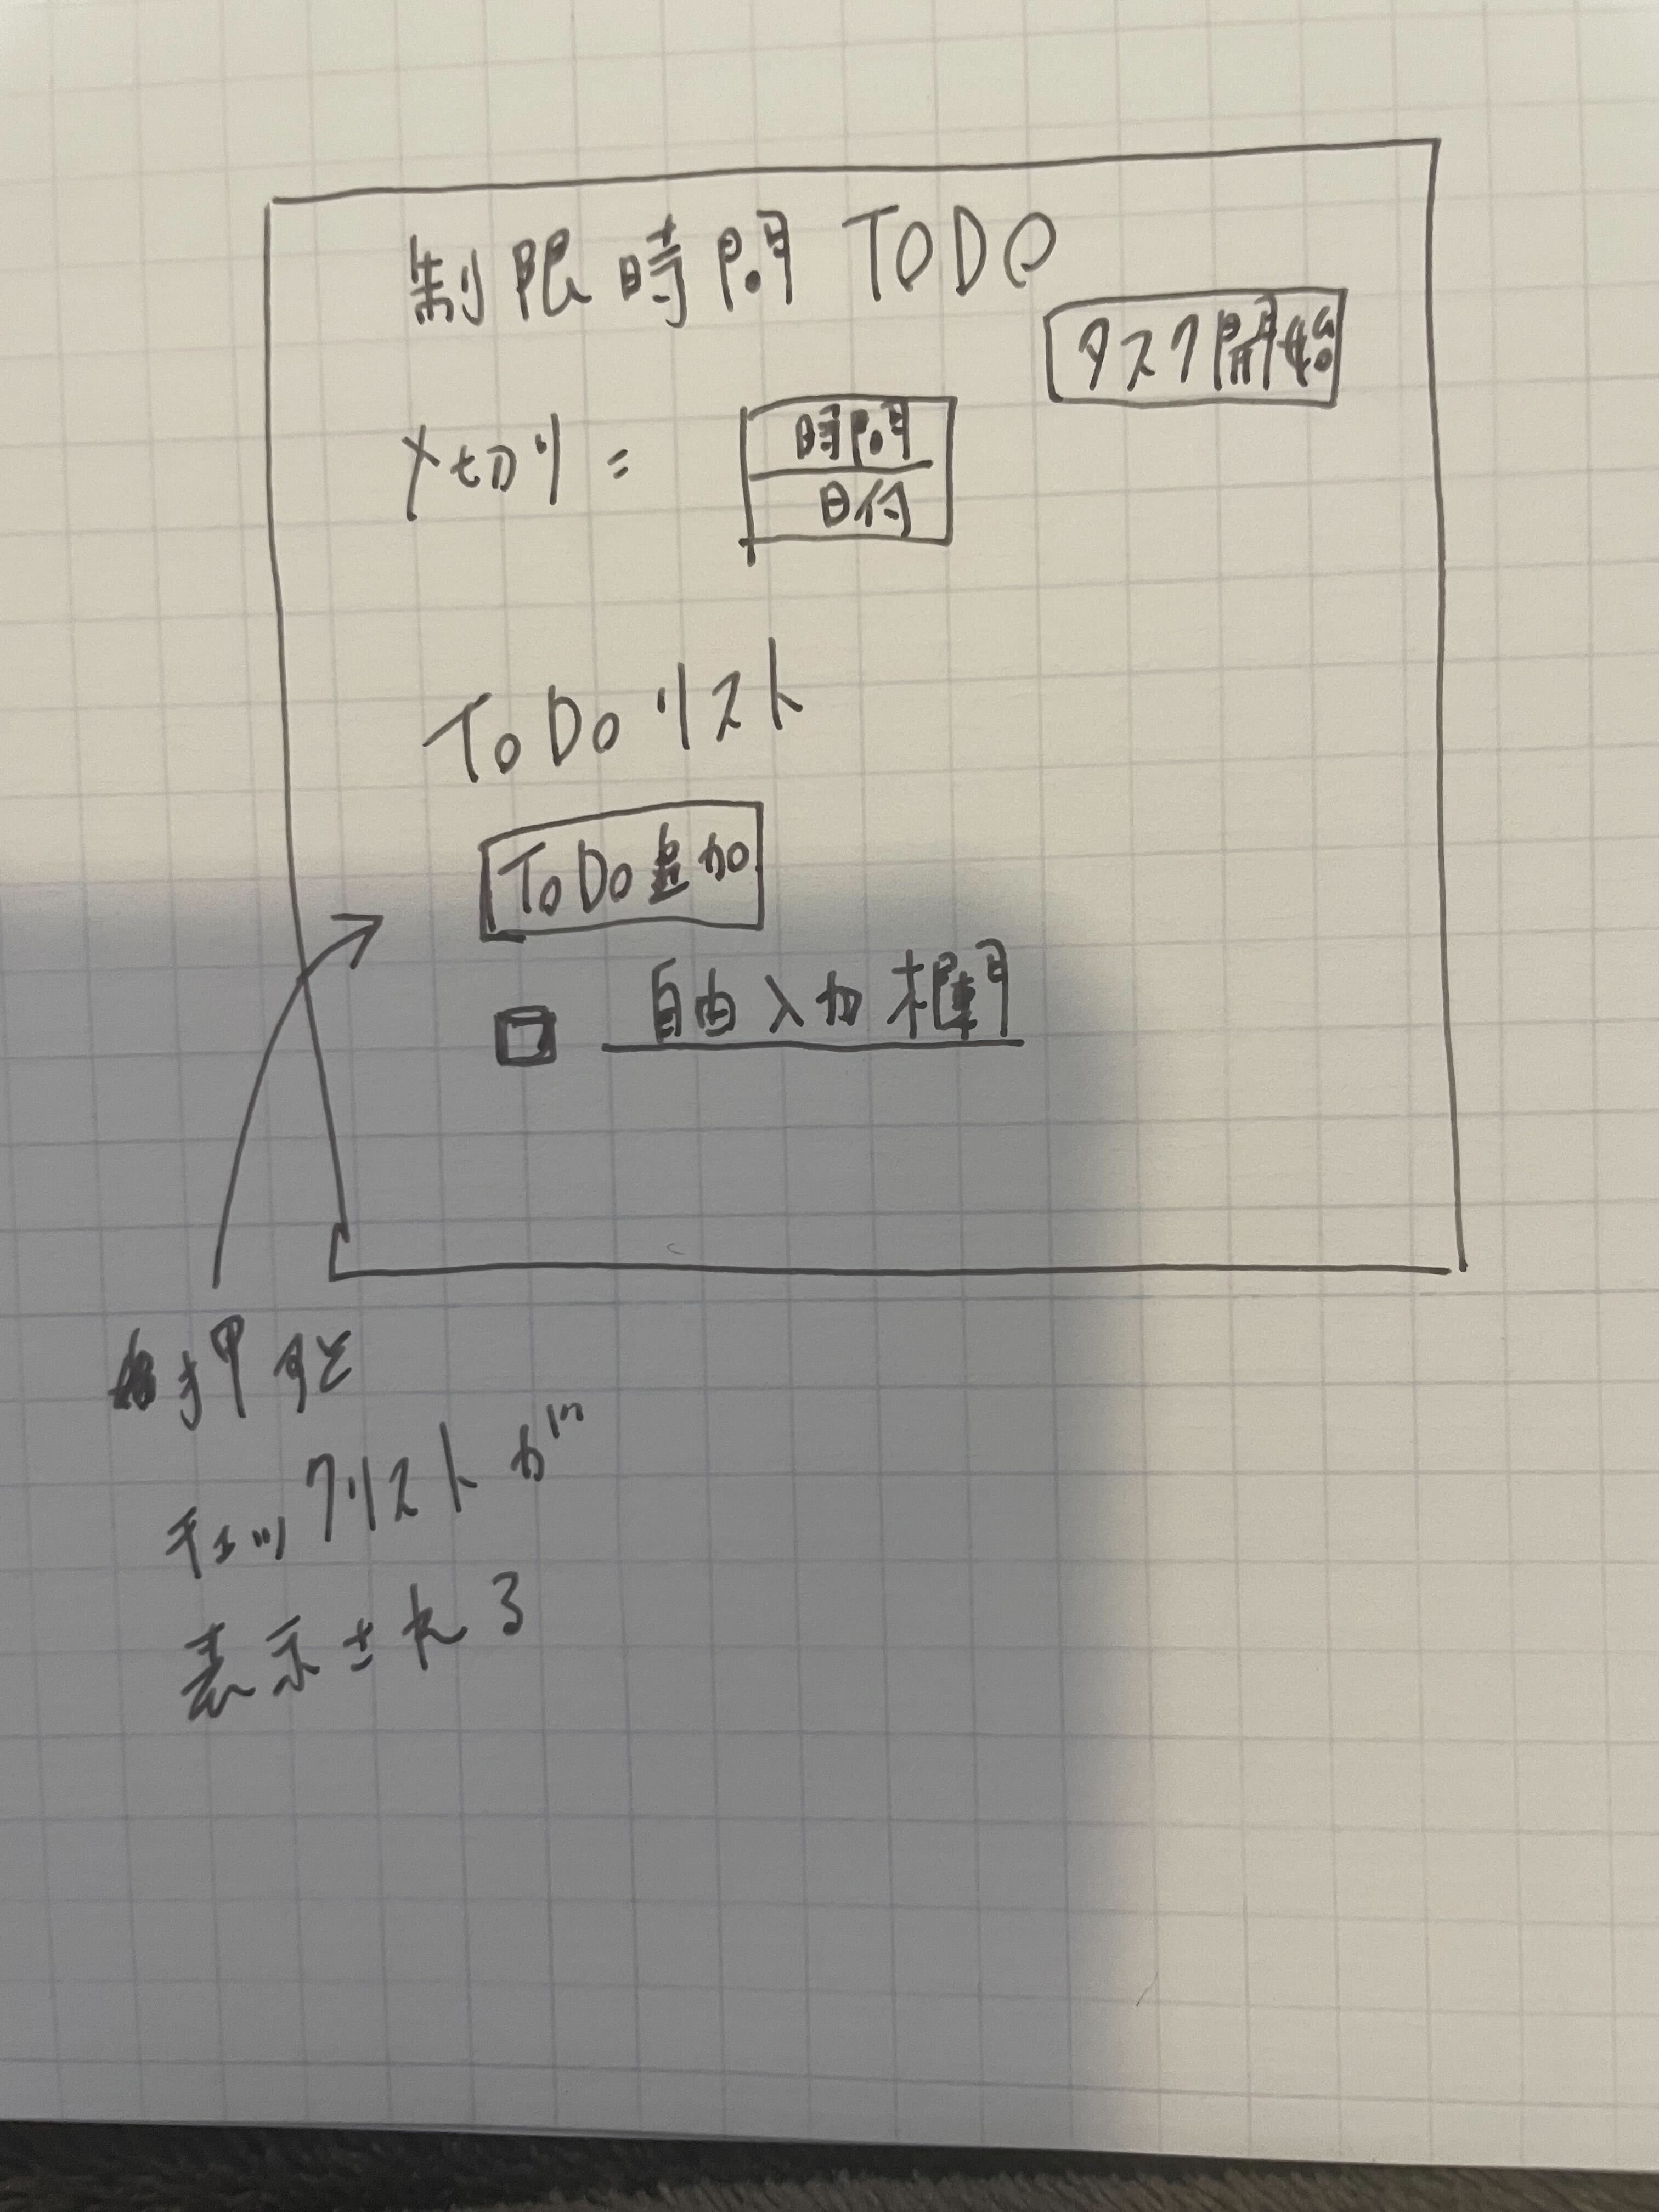 制限時間 TODO
タスク開始
〆切り =
時間
日付
ToDo リスト
ToDo 追加
自由入力欄
押すと
チェックリストが
表示される